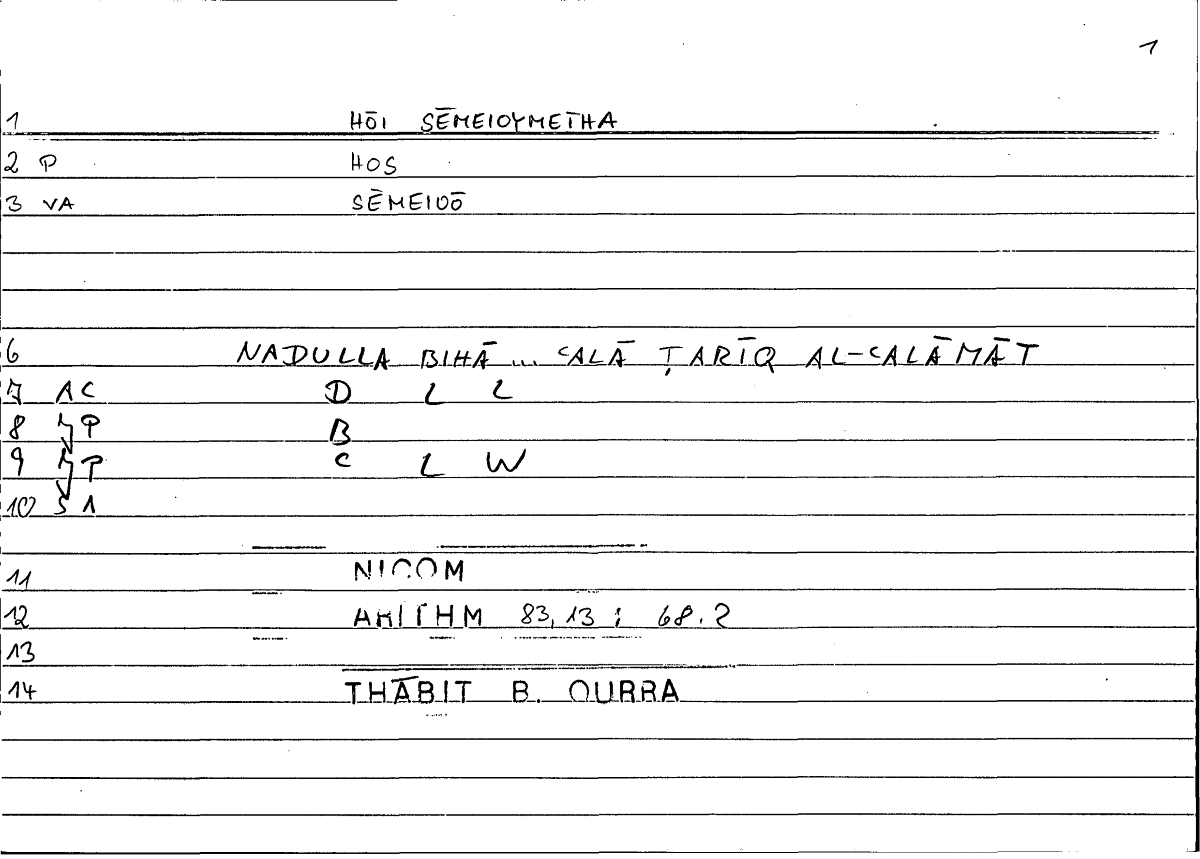 1
1 HŌI SĒMEIOYMETHA
2 P HOS
3 VA SĒMEIOŌ
6 NADULLA BIHĀ... ʿALĀ ṬARĪQ AL-ʿALĀMĀT
7 AC D L L
8 P B
9 P C L W
10 S 1
11 NICOM
12 ARITHM 83,13 ; 68.2
13
14 THĀBIT B. QURRA